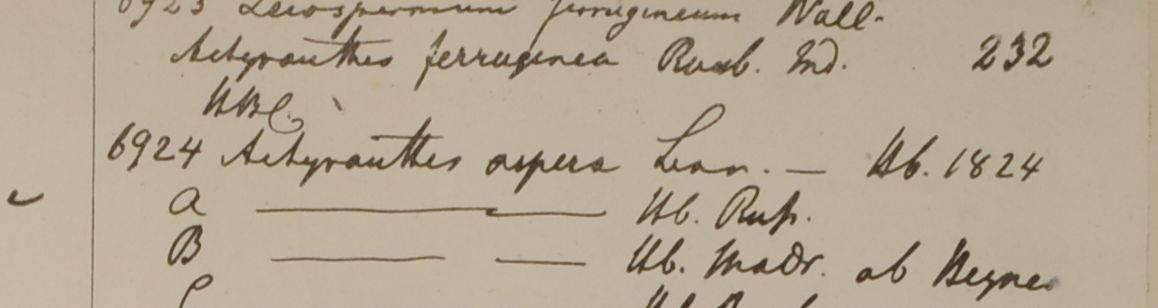 6923 Leiospermum ferrugineum Wall.
Achyranthes ferruginea Roxb. Ind. 232
HBC.
6924 Achyranthes aspera Linn. — Hb. 1824
a ——— —— Hb. Russ.
B ——— —— Hb. Madr. ab Heyneo
C